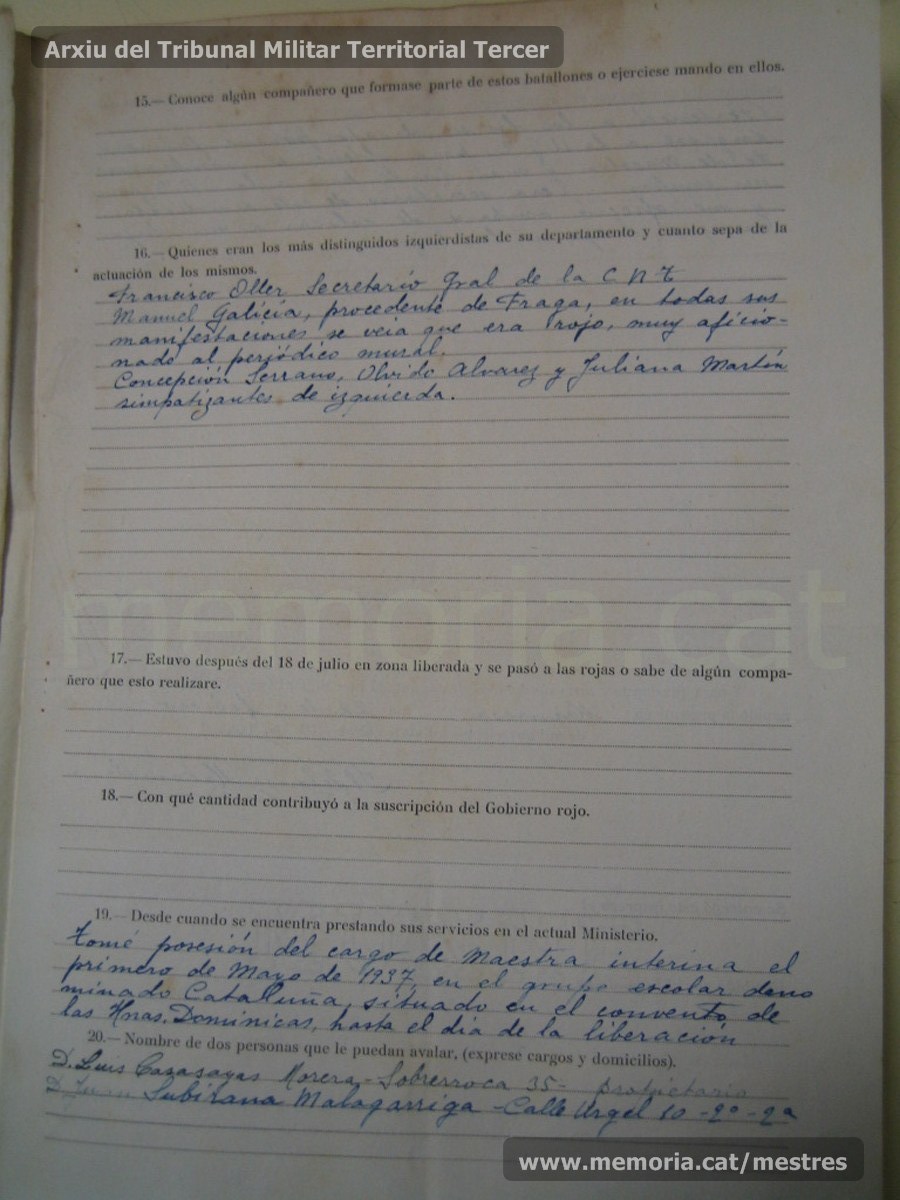 Arxiu del Tribunal Militar Territorial Tercer
15.— Conoce algún compañero que formase parte de estos batallones o ejerciese mando en ellos.
16.— Quienes eran los más distinguidos izquierdistas de su departamento y cuanto sepa de la
actuación de los mismos.
Francisco Oller Secretario Gral de la C N T
Manuel Galicia, procedente de Fraga, en todas sus
manifestaciones se veia que era rojo, muy aficio-
nado al periódico mural.
Concepción Serrano, Olvido Alvarez y Juliana Martín
simpatizantes de izquierda.
memoria.cat
17.— Estuvo después del 18 de julio en zona liberada y se pasó a las rojas o sabe de algún compa-
ñero que esto realizare.
18.— Con qué cantidad contribuyó a la suscripción del Gobierno rojo.
19.— Desde cuando se encuentra prestando sus servicios en el actual Ministerio.
Tomé posesión del cargo de Maestra interina el
primero de Mayo de 1937, en el grupo escolar deno
minado Cataluña, situado en el convento de
las Hnas. Dominicas, hasta el dia de la liberación
20.— Nombre de dos personas que le puedan avalar, (exprese cargos y domicilios).
D. Luis Casasayas Morera - Sobrerroca 35 - propietario
D. Subirana Malagarriga - Calle Urgel 10 - 2º - 2ª
www.memoria.cat/mestres